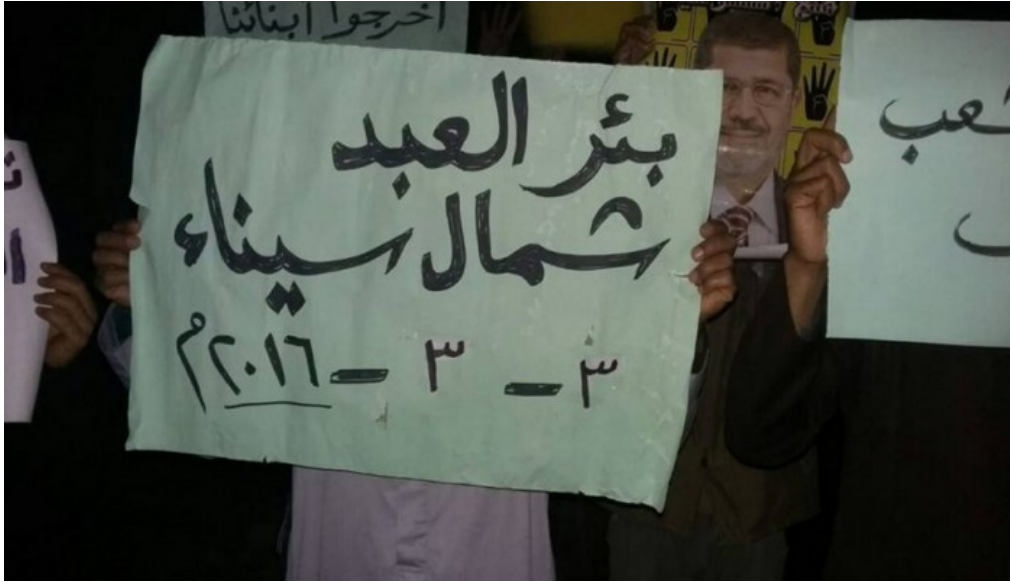 اخرجوا ابنائنا
بئر العبد
شمال سيناء
٣ - ٣ - ٢٠١٦م